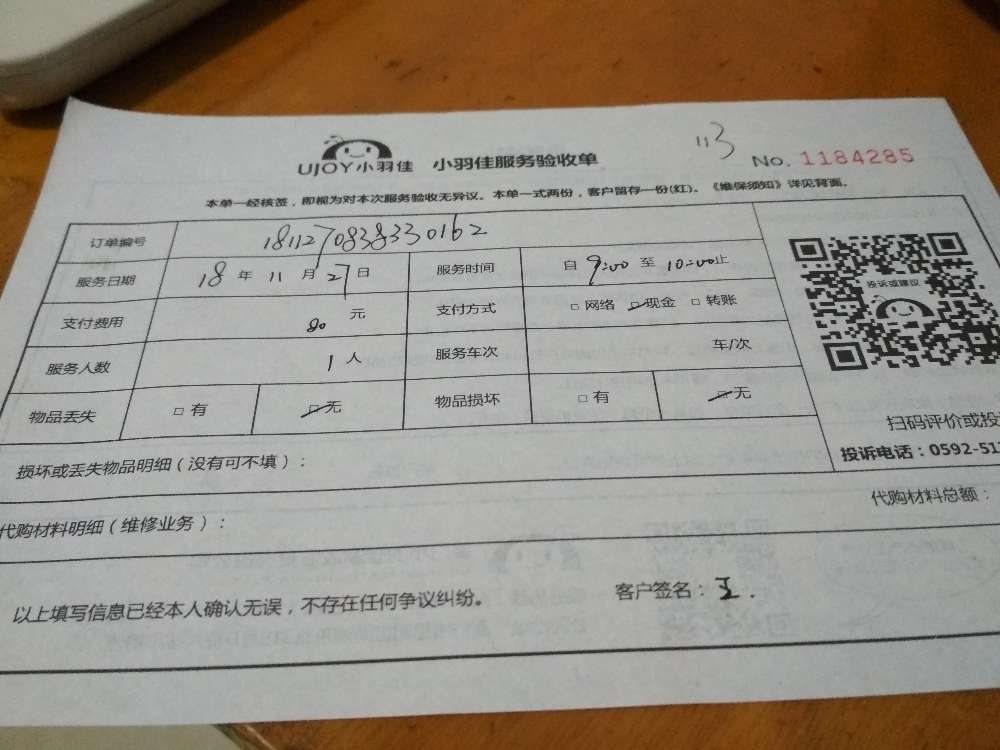 UJOY小羽佳 小羽佳服务验收单 113 No. 1184285
本单一经核签，即视为对本次服务验收无异议。本单一式两份，客户留存一份(红)。《维保须知》详见背面。
订单编号 1811270838330162
服务日期 18 年 11 月 27 日 服务时间 自 9:00 至 10:00止
投诉或建议
支付费用 80 元 支付方式 □ 网络 ☑ 现金 □ 转账
服务人数 1 人 服务车次 车/次
物品丢失 □ 有 ☑ 无 物品损坏 □ 有 ☑ 无
扫码评价或投
损坏或丢失物品明细（没有可不填）： 投诉电话：0592-51
代购材料明细（维修业务）： 代购材料总额：
以上填写信息已经本人确认无误，不存在任何争议纠纷。 客户签名：王.